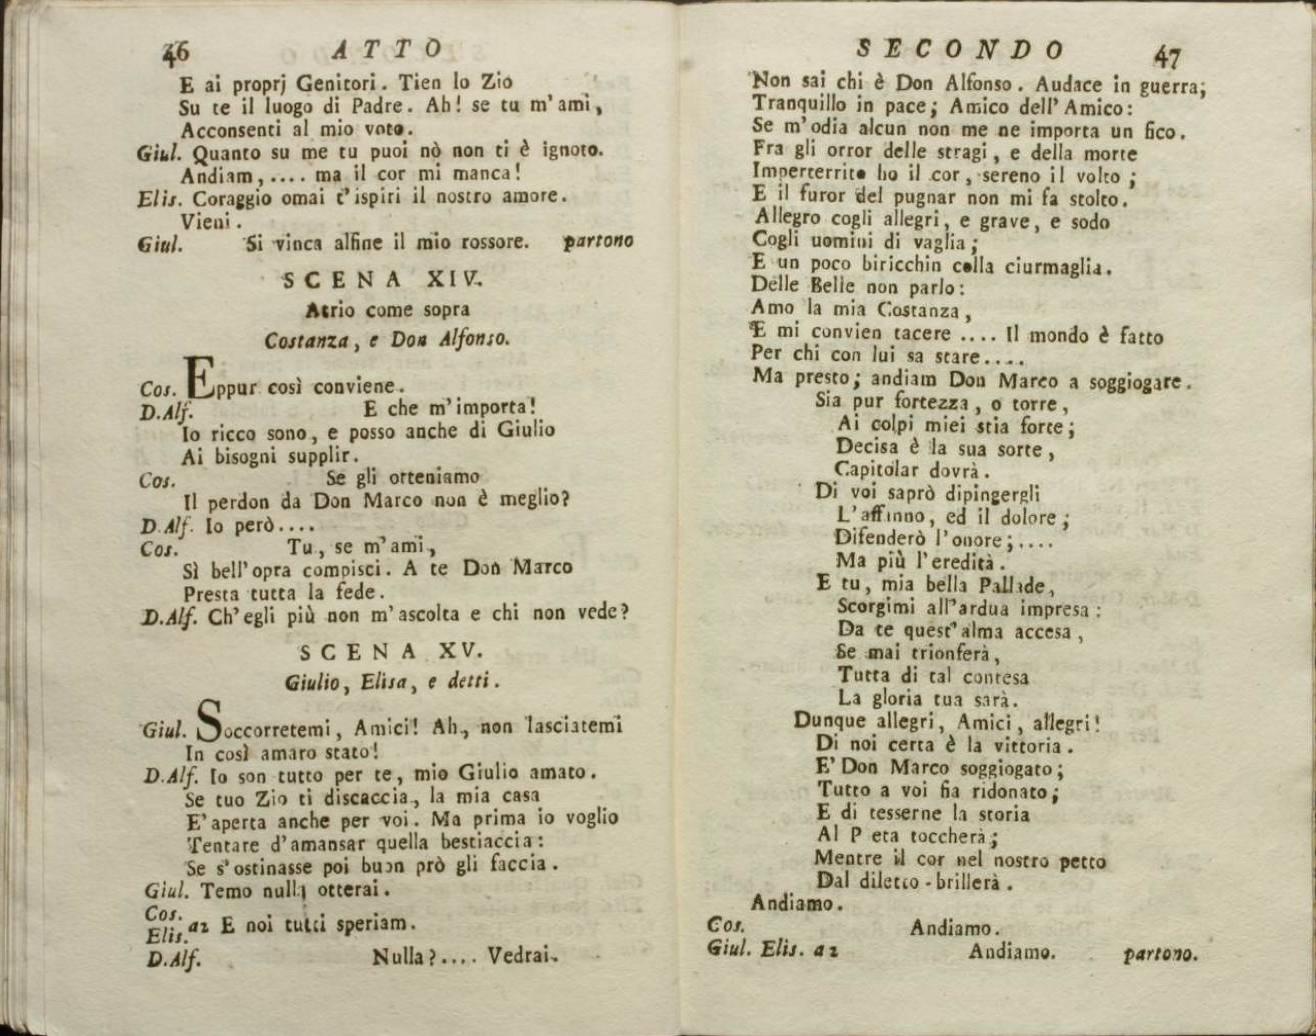 46 ATTO
E ai proprj Genitori. Tien lo Zio
Su te il luogo di Padre. Ah! se tu m'ami,
Acconsenti al mio voto.
Giul. Quanto su me tu puoi nò non ti è ignoto.
Andiam, .... ma il cor mi manca!
Elis. Coraggio omai t'ispiri il nostro amore.
Vieni.
Giul. Si vinca alfine il mio rossore. partono
SCENA XIV.
Atrio come sopra
Costanza, e Don Alfonso.
Cos. Eppur così conviene.
D.Alf. E che m'importa!
Io ricco sono, e posso anche di Giulio
Ai bisogni supplir.
Cos. Se gli otteniamo
Il perdon da Don Marco non è meglio?
D.Alf. Io però....
Cos. Tu, se m'ami,
Sì bell'opra compisci. A te Don Marco
Presta tutta la fede.
D.Alf. Ch'egli più non m'ascolta e chi non vede?
SCENA XV.
Giulio, Elisa, e detti.
Giul. Soccorretemi, Amici! Ah, non lasciatemi
In così amaro stato!
D.Alf. Io son tutto per te, mio Giulio amato.
Se tuo Zio ti discaccia, la mia casa
E'aperta anche per voi. Ma prima io voglio
Tentare d'amansar quella bestiaccia:
Se s'ostinasse poi buon prò gli faccia.
Giul. Temo nulla otterai.
Cos.
Elis. a2 E noi tutti speriam.
D.Alf. Nulla?.... Vedrai.
SECONDO 47
Non sai chi è Don Alfonso. Audace in guerra;
Tranquillo in pace; Amico dell'Amico:
Se m'odia alcun non me ne importa un fico.
Fra gli orror delle stragi, e della morte
Imperterrito ho il cor, sereno il volto;
E il furor del pugnar non mi fa stolto.
Allegro cogli allegri, e grave, e sodo
Cogli uomini di vaglia;
E un poco biricchin colla ciurmaglia.
Delle Belle non parlo:
Amo la mia Costanza,
E mi convien tacere .... Il mondo è fatto
Per chi con lui sa stare....
Ma presto; andiam Don Marco a soggiogare.
Sia pur fortezza, o torre,
Ai colpi miei stia forte;
Decisa è la sua sorte,
Capitolar dovrà.
Di voi saprò dipingergli
L'affanno, ed il dolore;
Difenderò l'onore;....
Ma più l'eredità.
E tu, mia bella Pallade,
Scorgimi all'ardua impresa:
Da te quest'alma accesa,
Se mai trionferà,
Tutta di tal contesa
La gloria tua sarà.
Dunque allegri, Amici, allegri!
Di noi certa è la vittoria.
E' Don Marco soggiogato;
Tutto a voi fia ridonato;
E di tesserne la storia
Al P eta toccherà;
Mentre il cor nel nostro petto
Dal diletto-brillerà.
Andiamo.
Cos. Andiamo.
Giul. Elis. a2 Andiamo. partono.